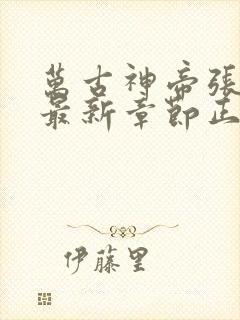 萬古神帝張
最新章節正
伊藤里